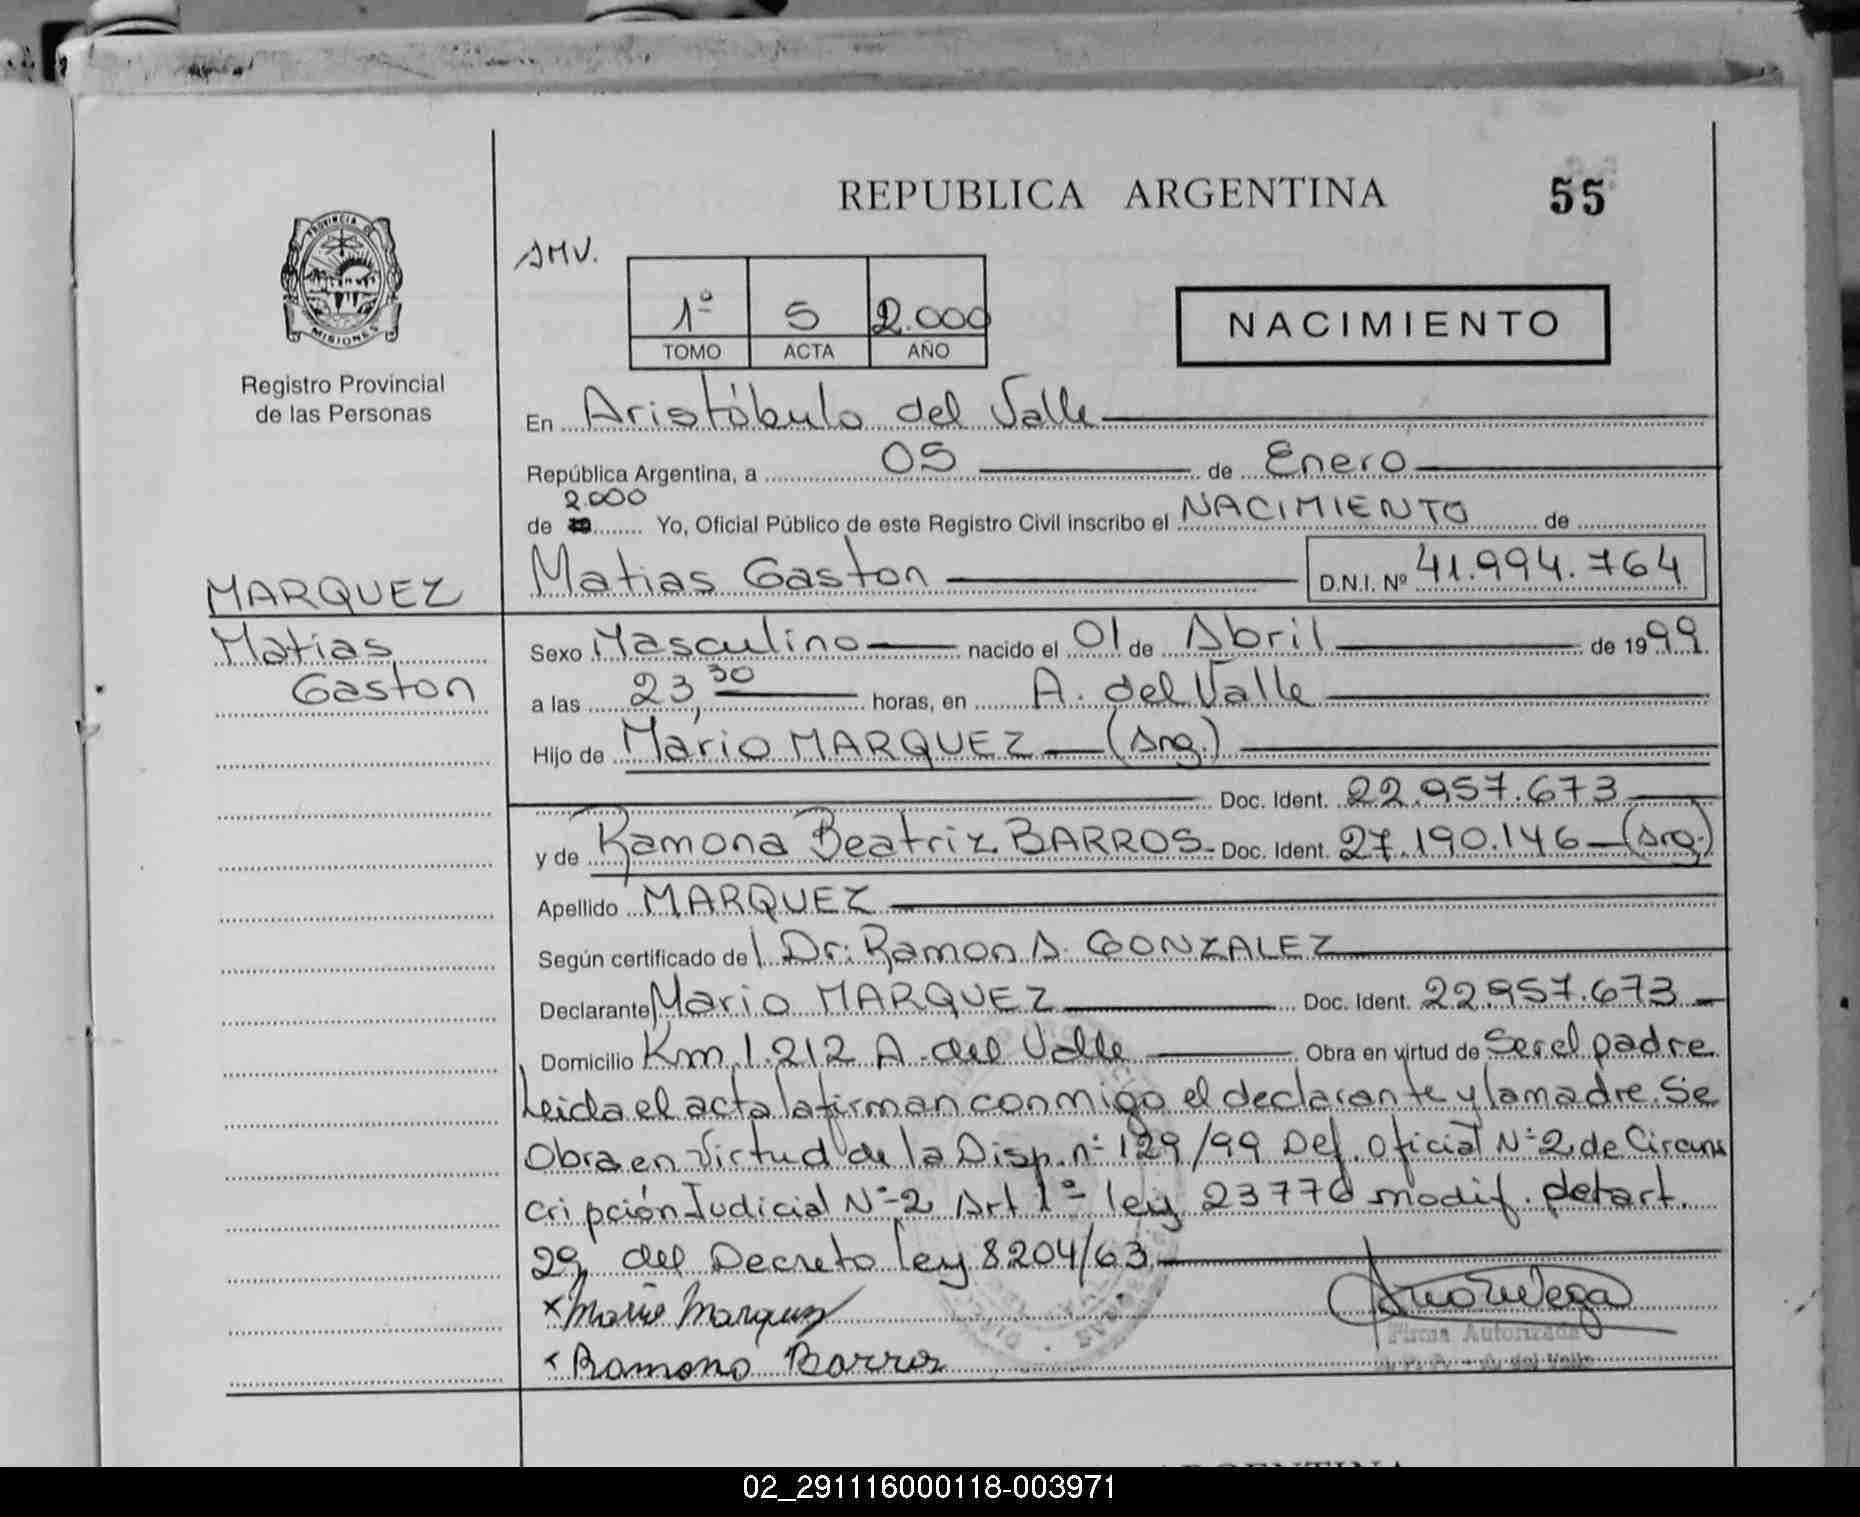 REPUBLICA ARGENTINA
55
PROVINCIA DE
MISIONES
Registro Provincial
de las Personas
AMV.
1º 5 2.000
TOMO ACTA AÑO
NACIMIENTO
En Aristóbulo del Valle
República Argentina, a 05 de Enero
2.000
de 19 Yo, Oficial Público de este Registro Civil inscribo el NACIMIENTO de
Matias Gaston D.N.I. Nº 41.994.764
MARQUEZ
Matias
Gaston
Sexo Masculino nacido el 01 de Abril de 1999
a las 23,30 horas, en A. del Valle
Hijo de Mario MARQUEZ (Arg.)
Doc. Ident. 22.957.673
y de Ramona Beatriz BARROS Doc. Ident. 27.190.146 (Arg.)
Apellido MARQUEZ
Según certificado de Dr: Ramon A. GONZALEZ
Declarante Mario MARQUEZ Doc. Ident. 22.957.673
Domicilio Km 1.212 A. del Valle Obra en virtud de Ser el padre
Leida el acta la firman conmigo el declarante y la madre. Se
Obra en Virtud de la Disp. nº 129/99 Def. Oficial Nº 2 de Circuns
cripción Judicial Nº 2 Art 1º ley 23776 modif. del art.
29 del Decreto ley 8204/63
x Mario Marquez
x Ramona Barros
Firma Autorizada
ARGENTINA
02_291116000118-003971